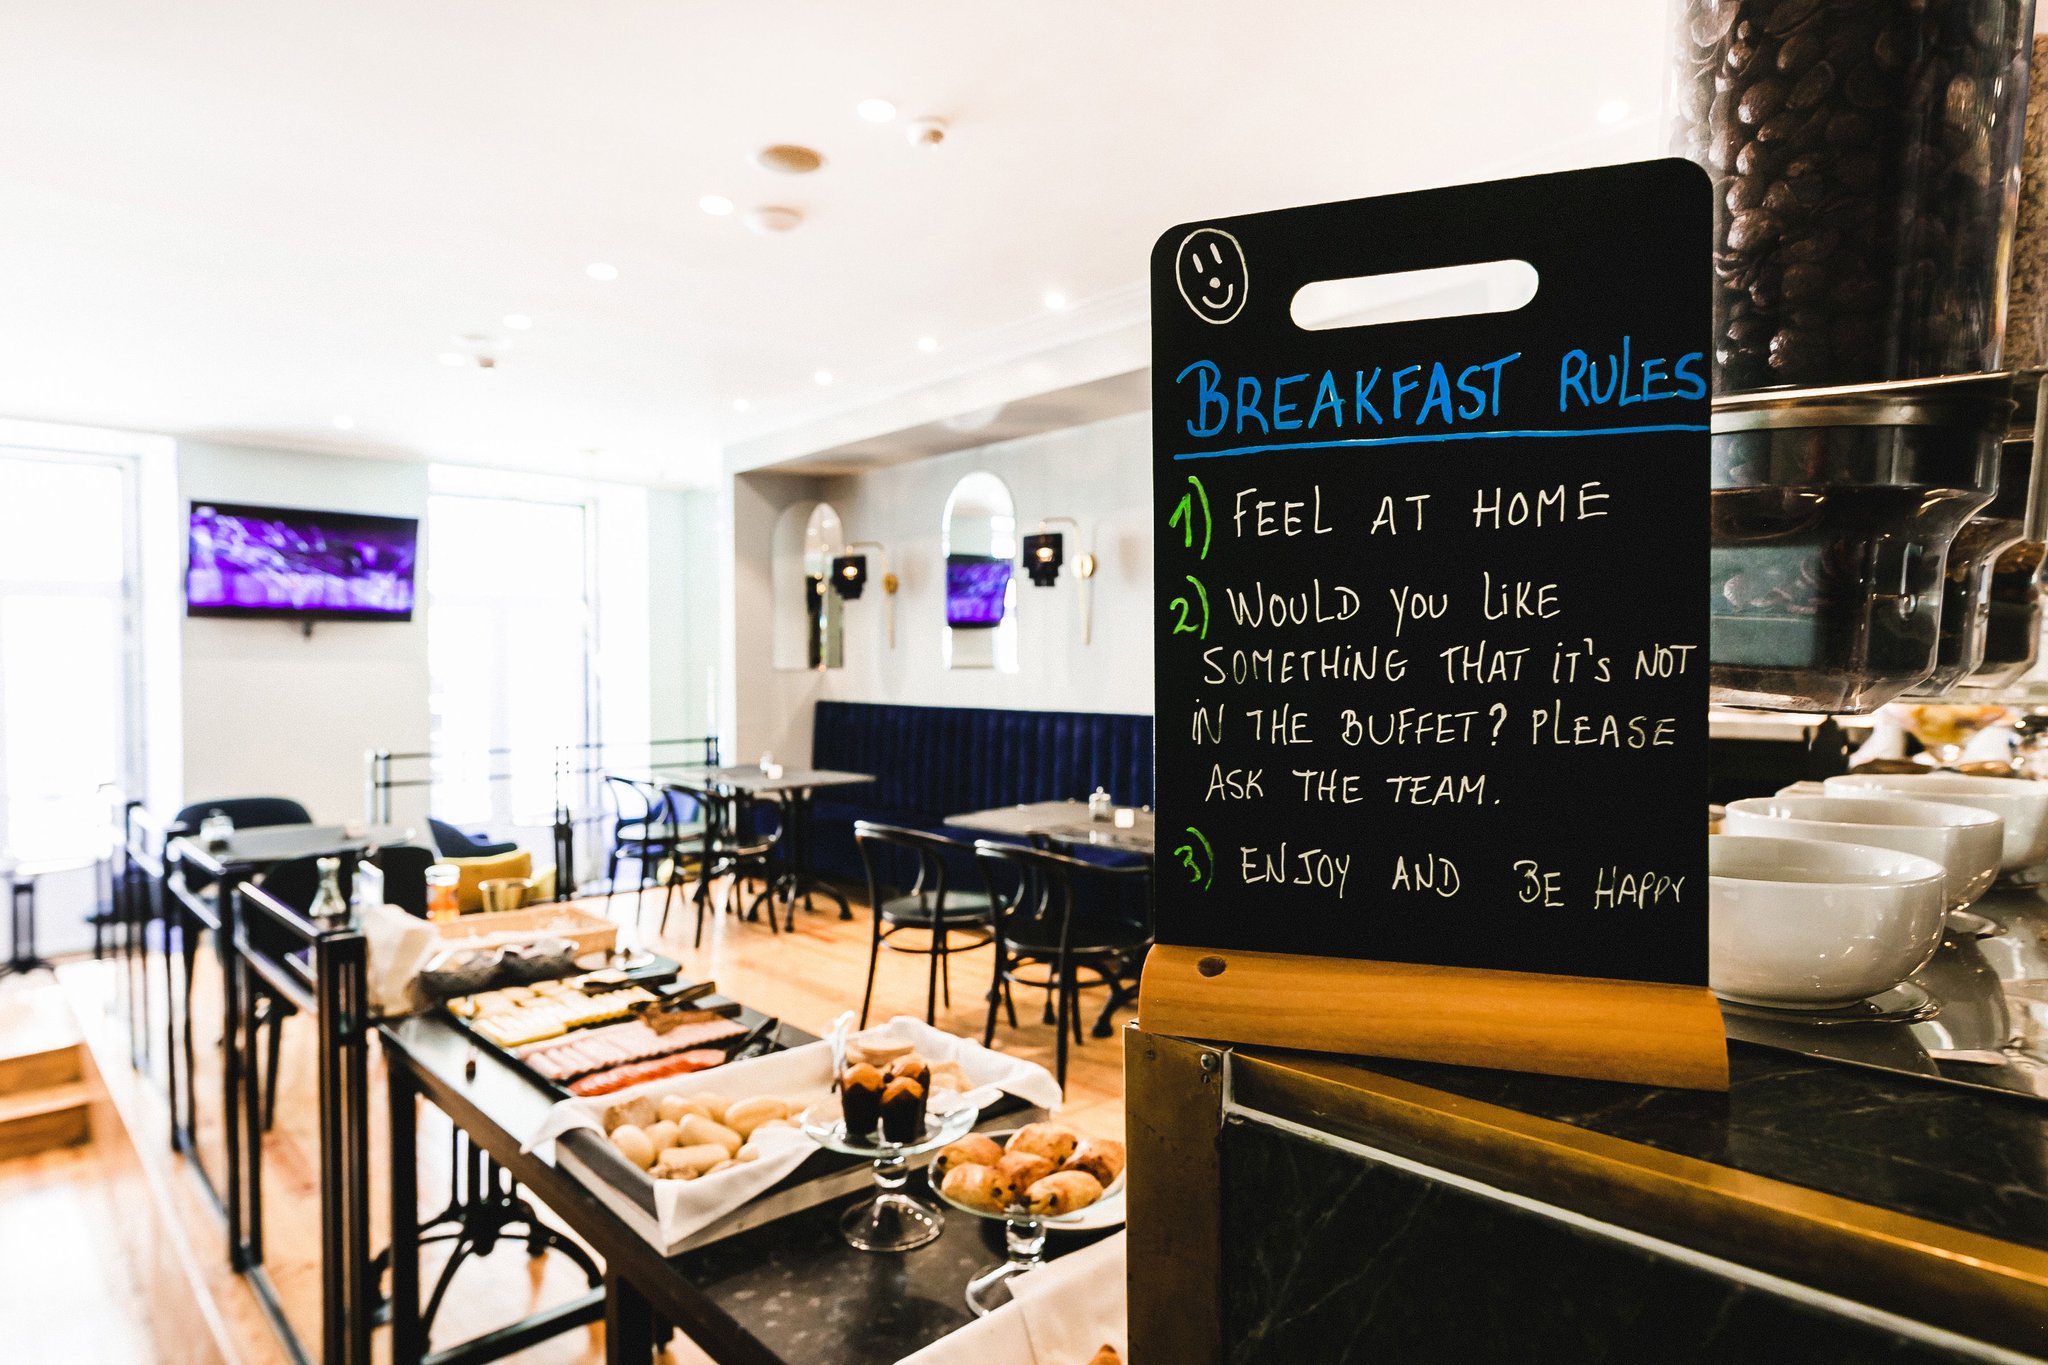 BREAKFAST RULES
1) FEEL AT HOME
2) WOULD YOU LIKE
SOMETHING THAT iT'S NOT
iN THE BUFFET? PLEASE
ASK THE TEAM.
3) ENJOY AND BE HAPPY